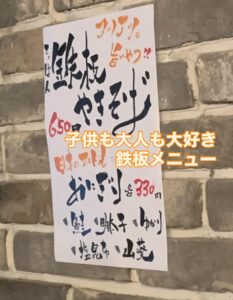 アツアツの
旨いやつ!!
鉄板
やきそば
650円
子供も大人も大好き
鉄板メニュー
おにぎり 各330円
鮭 明太子 ゆかり
塩昆布 山葵